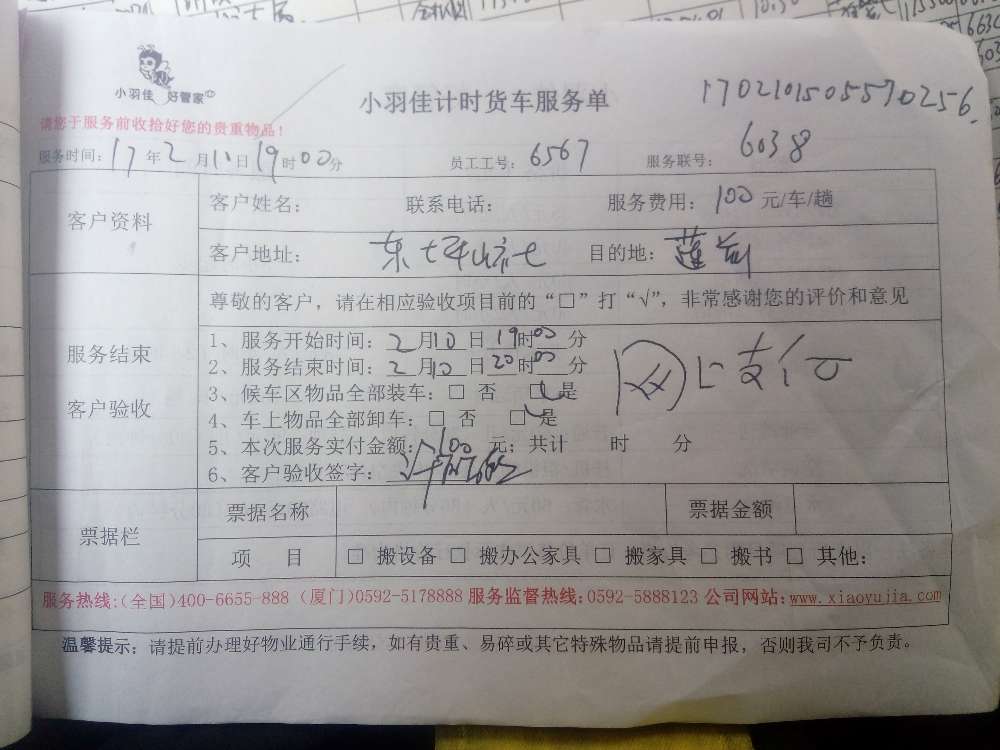 小羽佳 好管家
小羽佳计时货车服务单
17021015055570256
请您于服务前收拾好您的贵重物品！
服务时间：17年2月10日19时00分 员工工号：6567 服务联号：6038
客户资料
客户姓名： 联系电话： 服务费用：100元/车/趟
客户地址：东七坪山社七 目的地：莲前
服务结束
客户验收
尊敬的客户，请在相应验收项目前的“□”打“√”，非常感谢您的评价和意见
1、服务开始时间：2月10日19时00分
2、服务结束时间：2月10日20时00分
3、候车区物品全部装车：□ 否 □ 是
4、车上物品全部卸车：□ 否 □ 是
5、本次服务实付金额：100元；共计 时 分
6、客户验收签字：
网上支付
票据栏
票据名称 票据金额
项 目 □ 搬设备 □ 搬办公家具 □ 搬家具 □ 搬书 □ 其他：
服务热线：(全国)400-6655-888 (厦门)0592-5178888 服务监督热线：0592-5888123 公司网站：www.xiaoyujia.com
温馨提示：请提前办理好物业通行手续，如有贵重、易碎或其它特殊物品请提前申报，否则我司不予负责。